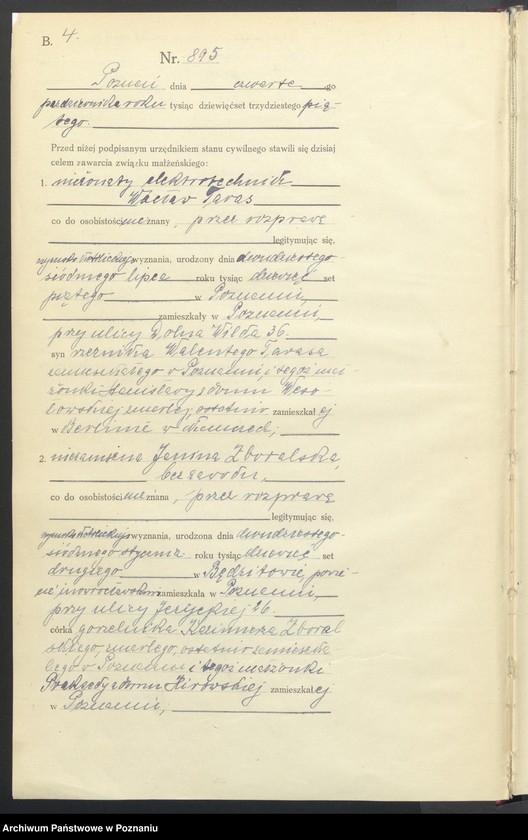 B. 4.
Nr. 895
Poznań dnia czwarte go
października roku tysiąc dziewięćset trzydziestego pią-
tego.
Przed niżej podpisanym urzędnikiem stanu cywilnego stawili się dzisiaj
celem zawarcia związku małżeńskiego:
1. nieżonaty elektrotechnik
Wacław Taras
co do osobistości nieznany, przez rozprawę
legitymując się,
wyznania, urodzony dnia dwudziestego
siódmego lipca roku tysiąc dziewięć set
piątego w Poznaniu,
zamieszkały w Poznaniu,
przy ulicy Dolna Wilda 36.
syn rzeźnika Walentego Tarasa
zamieszkałego w Poznaniu, i tegoż mał-
żonki Stanisławy z domu Weso-
łowskiej zmarłej, ostatnio zamieszkałej
w Berlinie w Niemczech,
2. niezamężna Janina Zboralska,
bez zawodu,
co do osobistości nieznana, przez rozprawę
legitymując się,
wyznania, urodzona dnia dwudziestego
siódmego stycznia roku tysiąc dziewięć set
drugiego w powie-
cie inowrocławskim zamieszkała w Poznaniu,
przy ulicy Jeżyckiej 26.
córka gorzelnika Kazimierza Zboral
skiego, zmarłego, ostatnio zamieszka
łego w Poznaniu i tegoż małżonki
Praksedy z domu zamieszkałej
w Poznaniu,
Archiwum Państwowe w Poznaniu